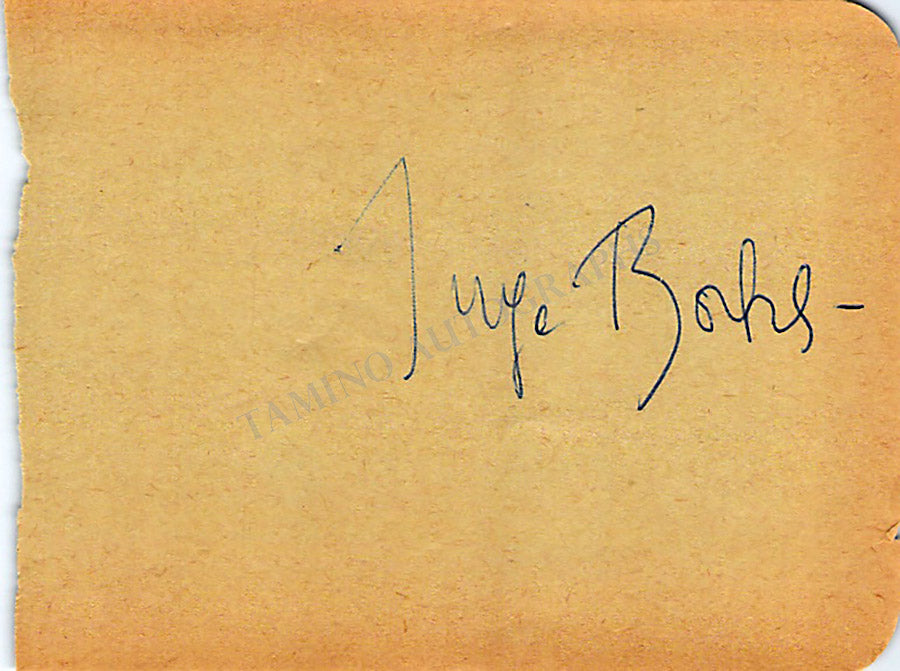 Inge Borkh -
TAMINO AUTOGRAPHS